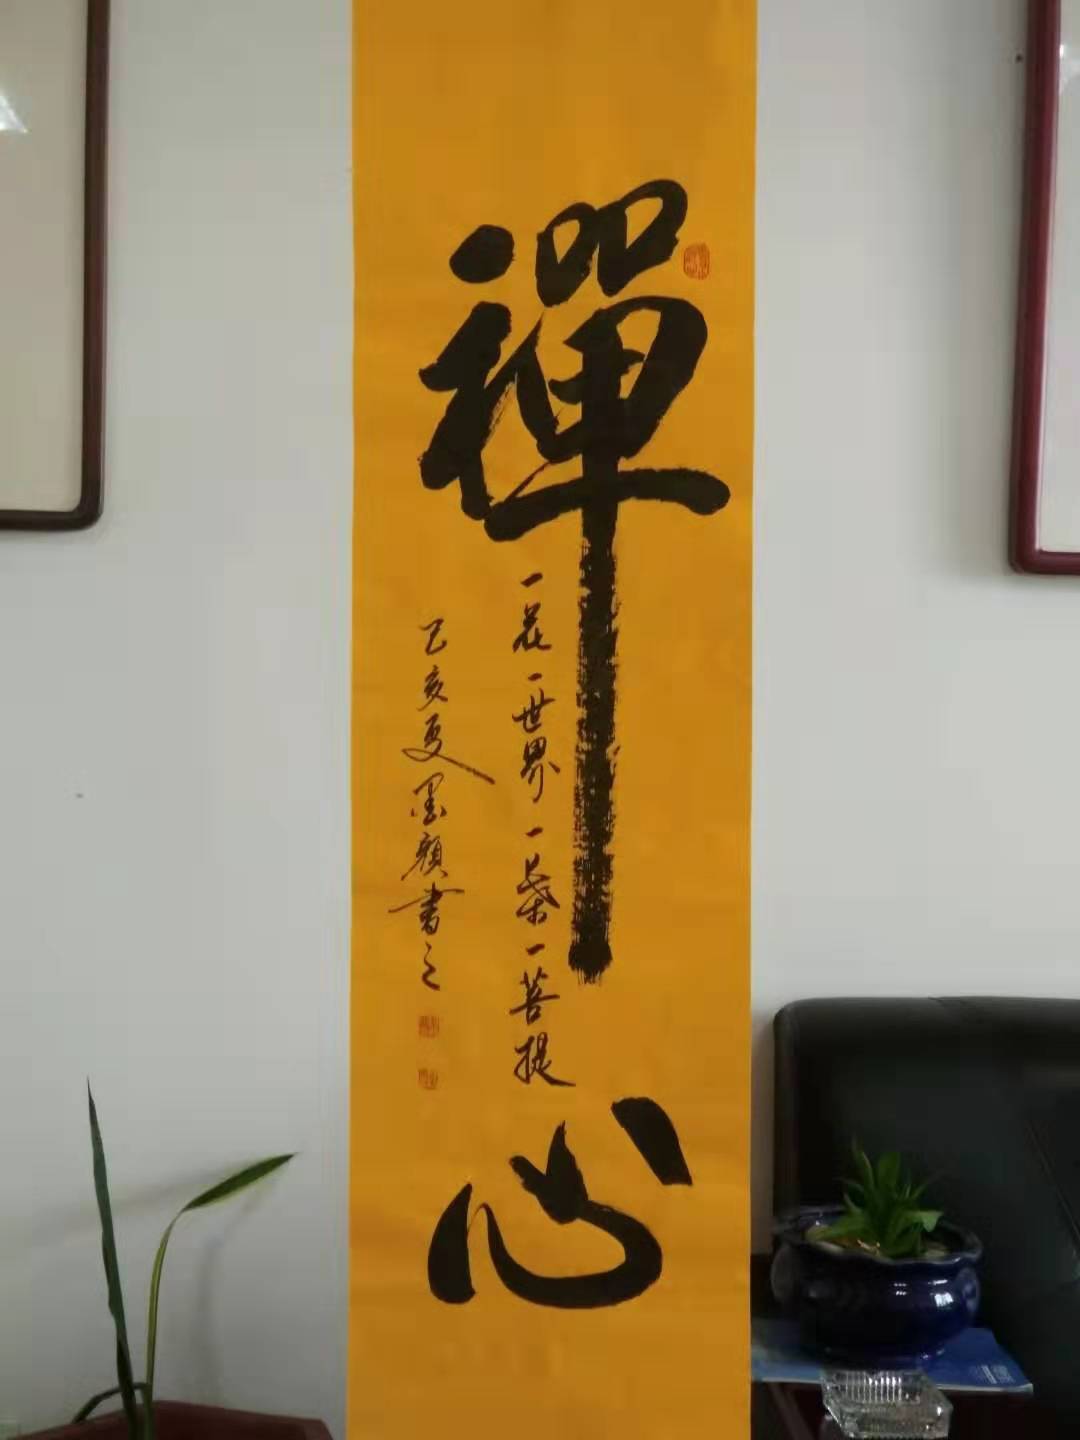 禪心
一花一世界一葉一菩提
己亥夏墨顏書之